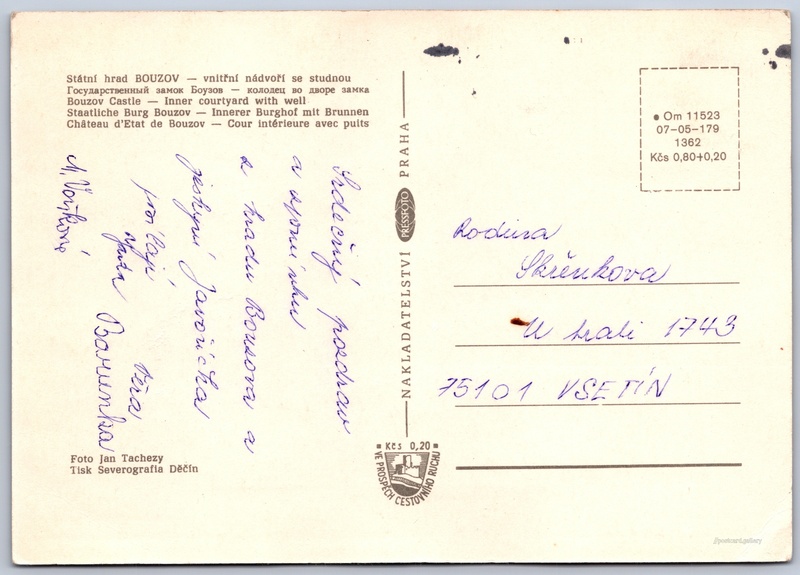 Státní hrad BOUZOV — vnitřní nádvoří se studnou
Государственный замок Боузов — колодец во дворе замка
Bouzov Castle — Inner courtyard with well
Staatliche Burg Bouzov — Innerer Burghof mit Brunnen
Château d'Etat de Bouzov — Cour intérieure avec puits
Srdečný pozdrav
a vzpomínku
z hradu Bouzova a
jeskyní Javoříčka
posílají
Věra
Barunka
M.
Foto Jan Tachezy
Tisk Severografia Děčín
NAKLADATELSTVÍ PRESSFOTO PRAHA
Kčs 0,20
VE PROSPĚCH CESTOVNÍHO RUCHU
Om 11523
07-05-179
1362
Kčs 0,80+0,20
Rodina
Skřenkova
U trati 1743
75101 VSETÍN